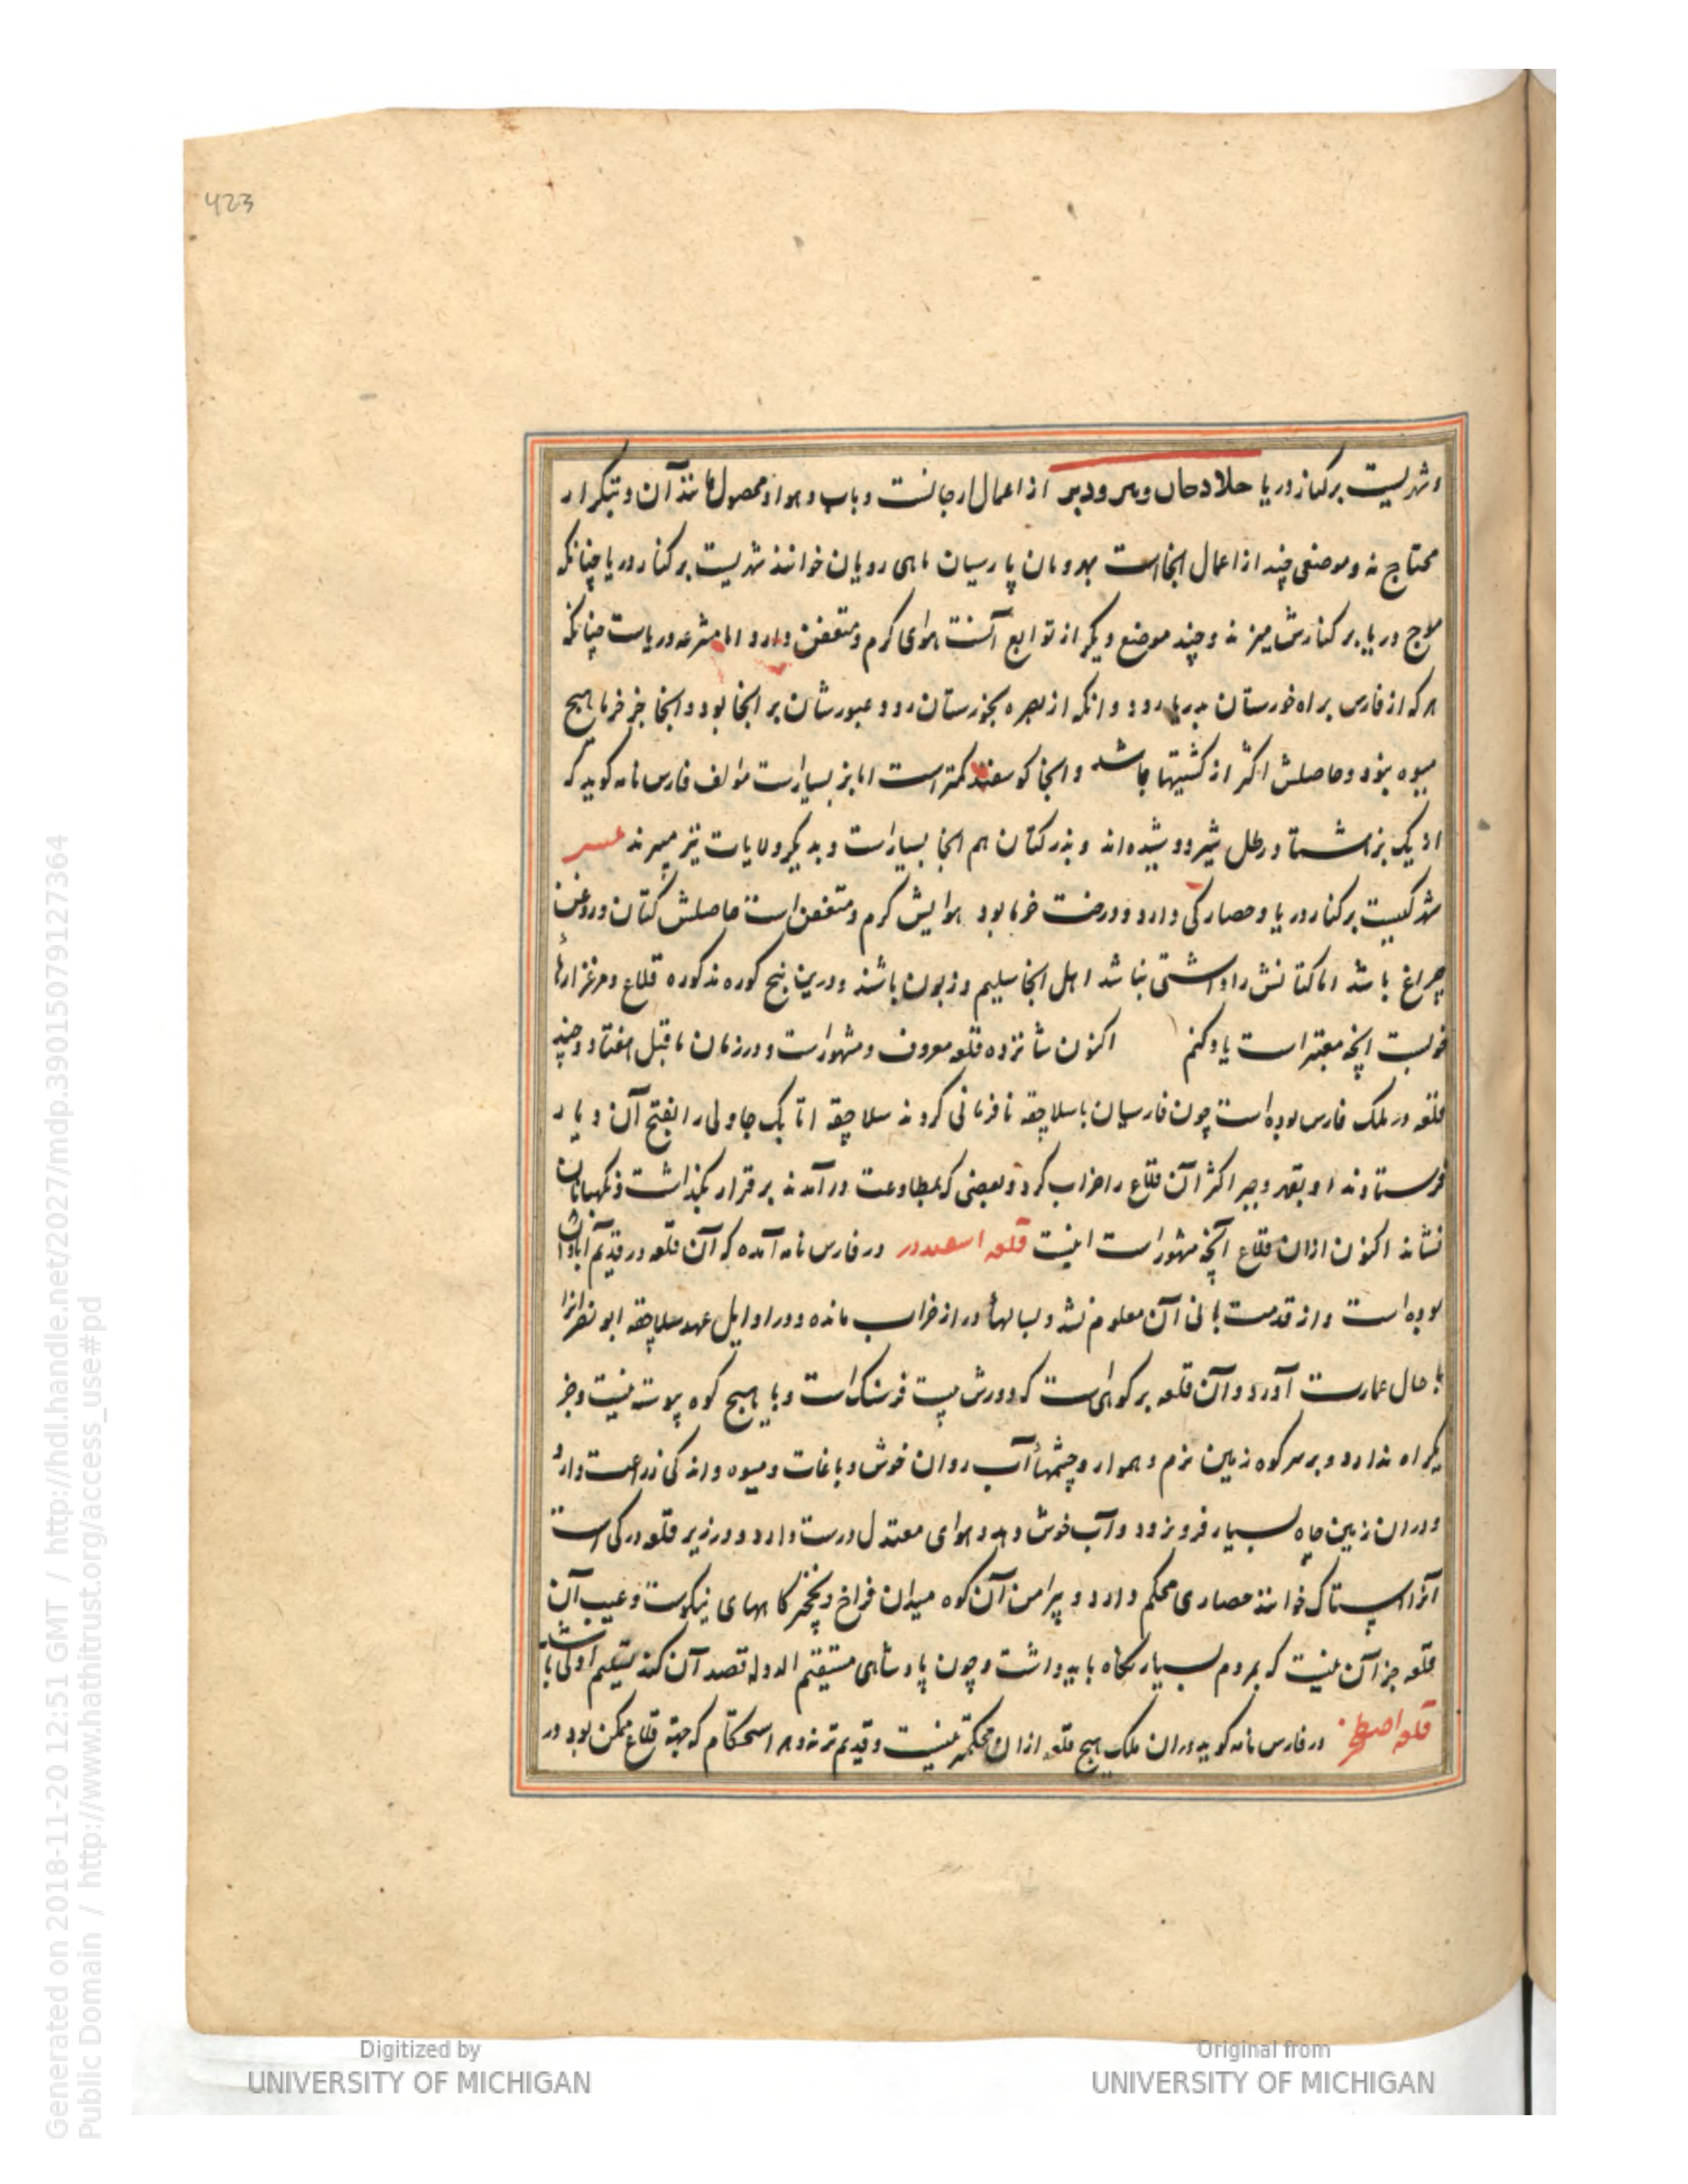 423
و شهریست بر کنار دریا جلادجان و نیر و دیر از اعمال ارجانست و باب و هوا و محصول مانند آن و بتکرار
محتاج نه و موضعی چند از اعمال انجااست مهروبان پارسیان ماهی رویان خوانند شهریست بر کنار دریا چنانکه
موج دریا بر کنارش میزند و چند موضع دیگر از توابع آنست هوای گرم و متعفن دارد اما مشرعه دریاست چنانکه
هر که از فارس براه خورستان بدریا رود و انکه از بصره بخوزستان رود عبورشان بر انجا بود و انجا جز خرما هیچ
میوه نبود و حاصلش اکثر از کشتیها باشد و انجا کوسفند کمتر است اما بز بسیارست مؤلف فارس نامه کوید که
از یک بز هشتاد رطل شیر دوشیده‌اند و بذر کتان هم انجا بسیارست و بدیکر ولایات نیز میبرند
شهرکیست بر کنار دریا و حصارکی دارد و درخت خرما بود هوایش گرم و متعفن است حاصلش کتان و روغن
چراغ باشد اما کتانش را داشتی نباشد اهل انجا سلیم و زبون باشند و درین پنج کوره مذکوره قلاع و مرغزارها
خوبست انچه معتبر است یاد کنم اکنون شانزده قلعه معروف و مشهورست و در زمان ماقبل هفتاد و چند
قلعه در ملک فارس بوده است چون فارسیان با سلاجقه نافرمانی کردند سلاجقه اتابک جاولی را بفتح آن دیار
فرستادند او بقهر و جبر اکثر آن قلاع را خراب کرد و بعضی که بمطاوعت درآمدند بر قرار بگذاشت و نگهبانان
نشاند اکنون ازان قلاع آنچه مشهورست اینست قلعه اسفیدز در فارس نامه آمده که آن قلعه در قدیم آبادان
بوده است و از قدمت بانی آن معلوم نشد و بسالهاء دراز خراب مانده و در اوایل عهد سلاجقه ابو نصر انرا
با حال عمارت آورد و آن قلعه بر کوهی است که دورش بیست فرسنک است و با هیچ کوه پیوسته نیست و جز
یکراه ندارد و بر سر کوه زمین نرم و هموار و چشمهاء آب روان خوش و باغات و میوه و اندکی زراعت دارد
و دران زمین چاه بسیار فروبرند و آب خوش دهد و هوای معتدل درست دارد و در زیر قلعه دزکی است
آنرا استاک خوانند حصاری محکم دارد و پیرامن آن کوه میدان فراخ و نخچیرگاههای نیکوست و عیب آن
قلعه جز آن نیست که بمردم بسیار نگاه باید داشت و چون پادشاهی مستقیم الدوله قصد آن کند تسلیم اولی باشد
قلعه اصطخر در فارس نامه کوید دران ملک هیچ قلعه ازان محکمتر نیست و قدیم تر نه و هر استحکام که جهة قلاع ممکن بود در
Digitized by
UNIVERSITY OF MICHIGAN
Original from
UNIVERSITY OF MICHIGAN
Generated on 2018-11-20 12:51 GMT / http://hdl.handle.net/2027/mdp.39015079127364
Public Domain / http://www.hathitrust.org/access_use#pd